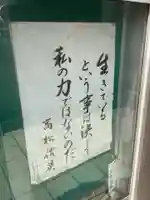 生きている
という事は決して
私の力ではないのだ
高松